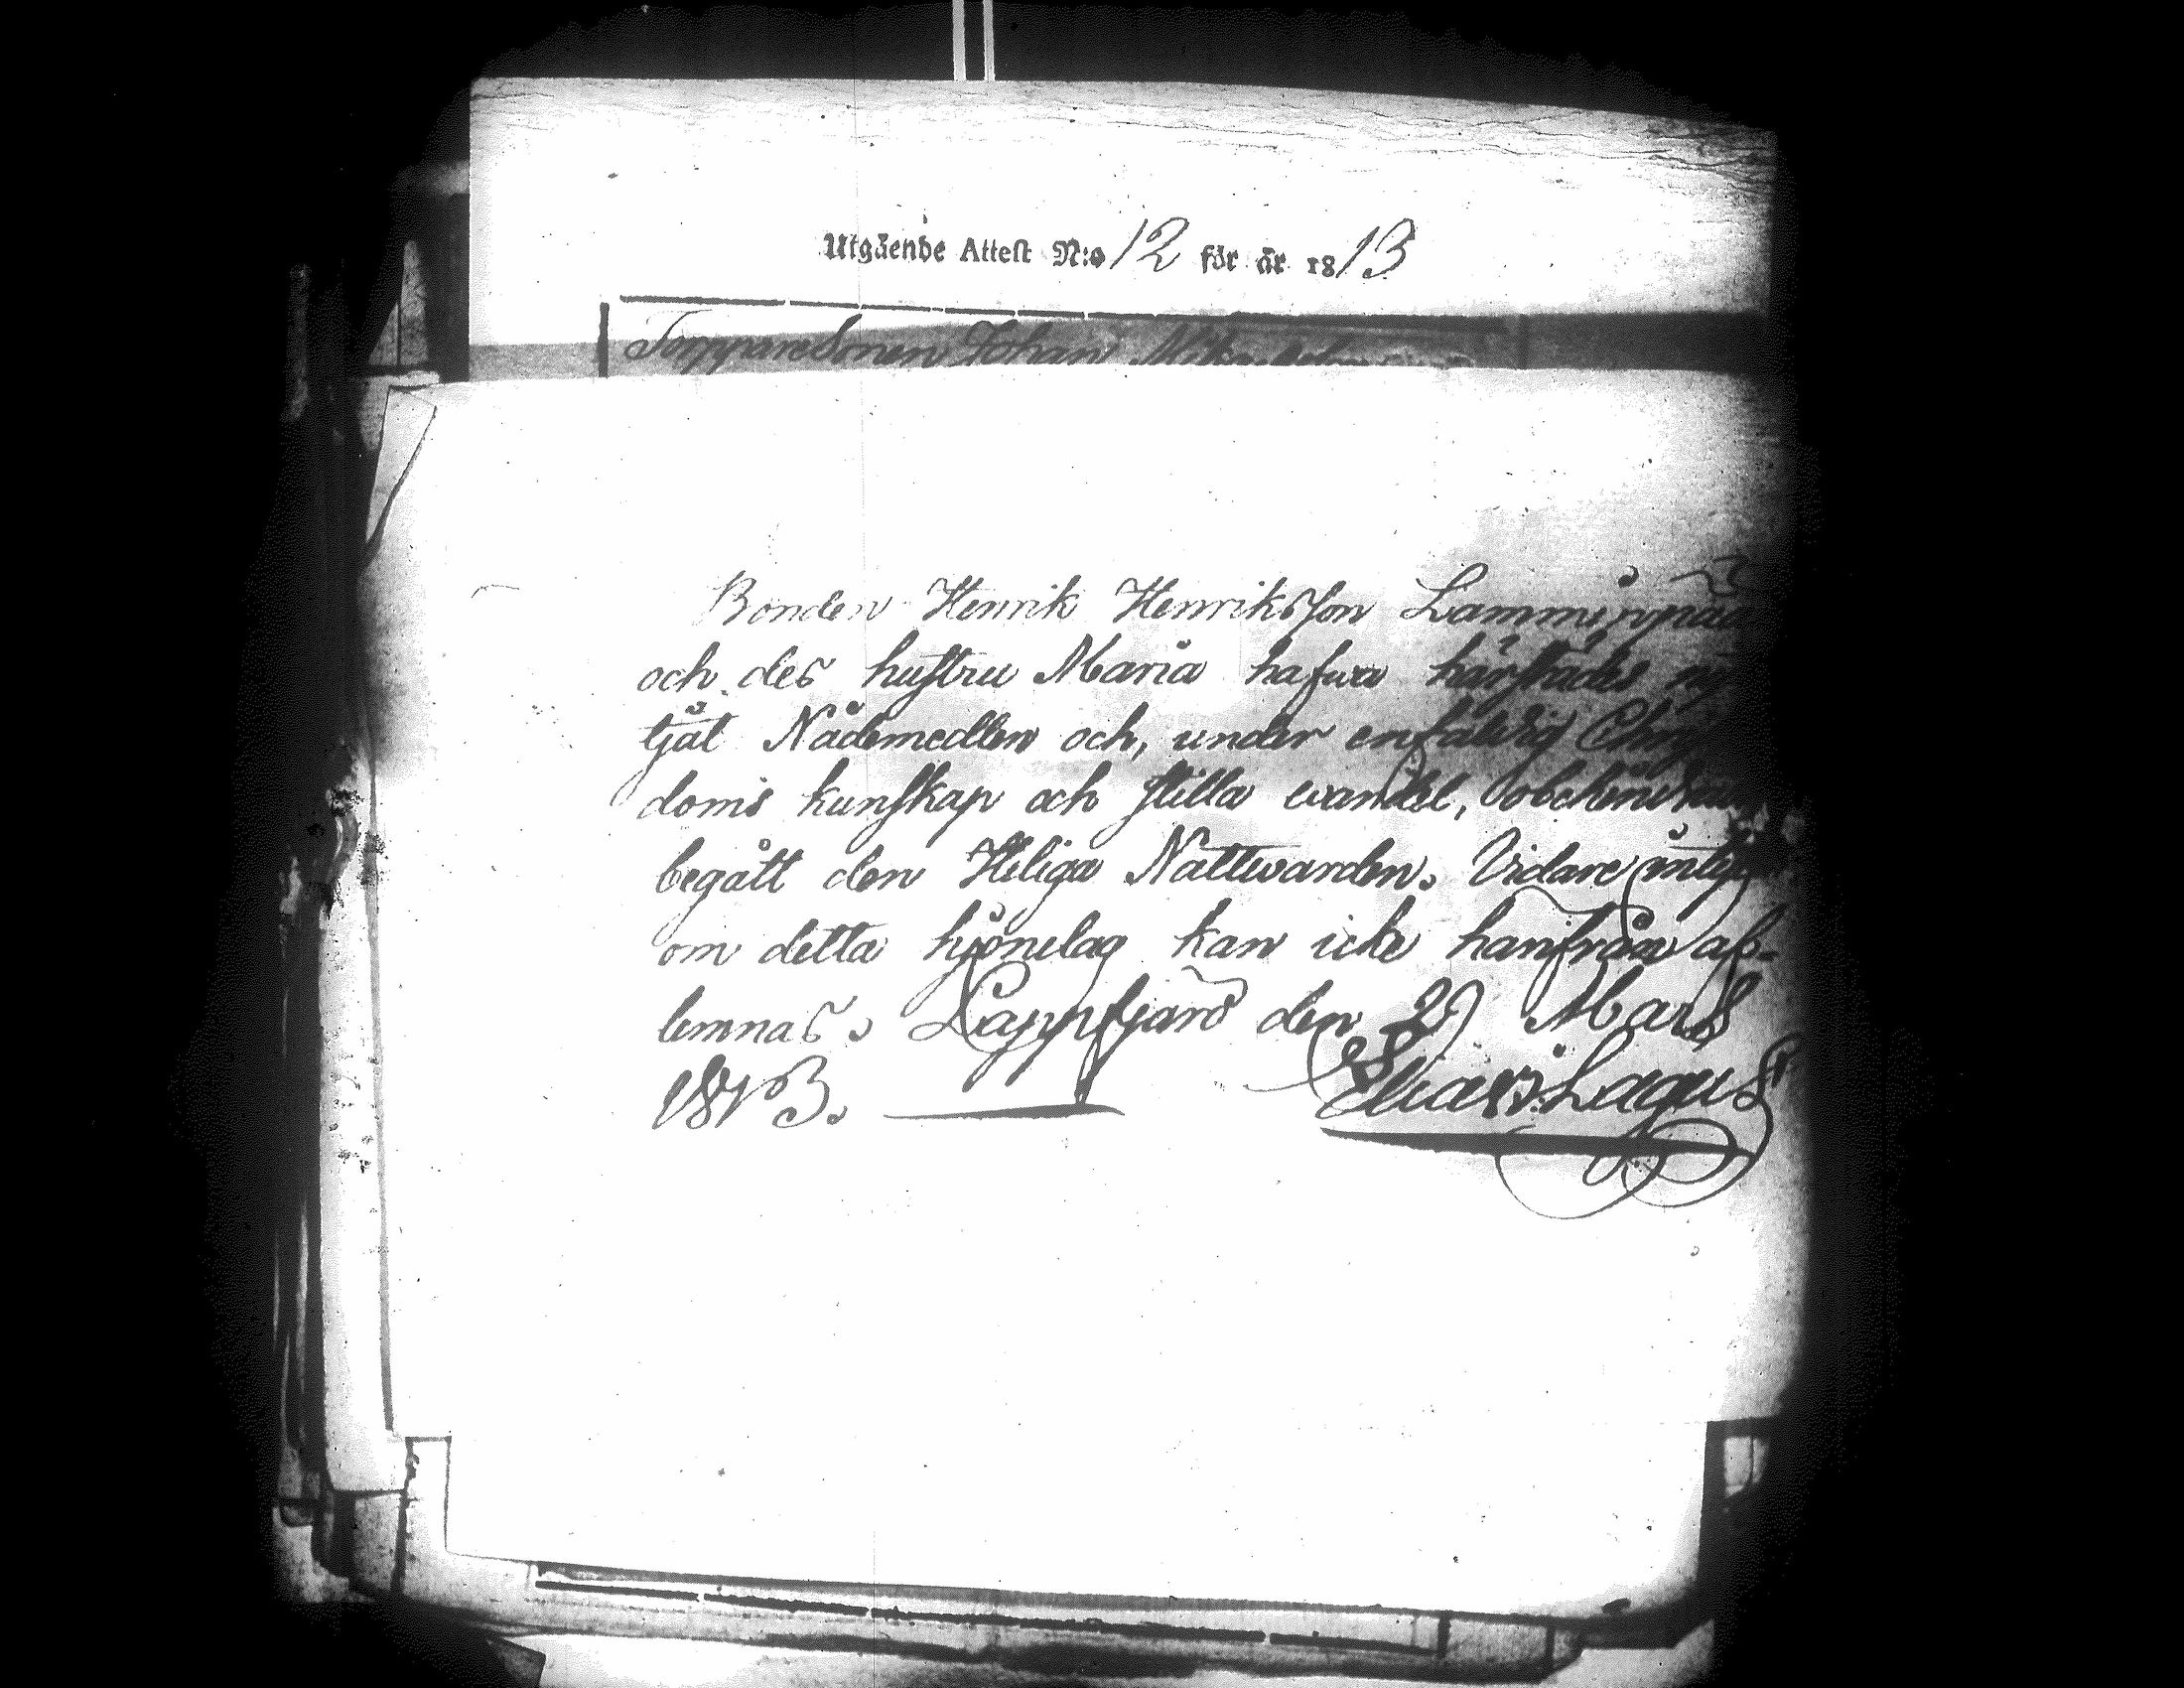 Utgående Attest N:o 12 för år 1813
Torpparesonen Johan
Bonden Henrik Henriksson Lamminpää
och des hustru Maria hafwa härstädes
tjat Nådemedlen och, under enfaldig
doms kunskap och stilla wandel,
begått den Heliga Nattwarden. Vidare intyg
om detta hjonelag kan icke hänfrån af-
lemnas. Lappfjärd den Mars
1813. Elias Lagus